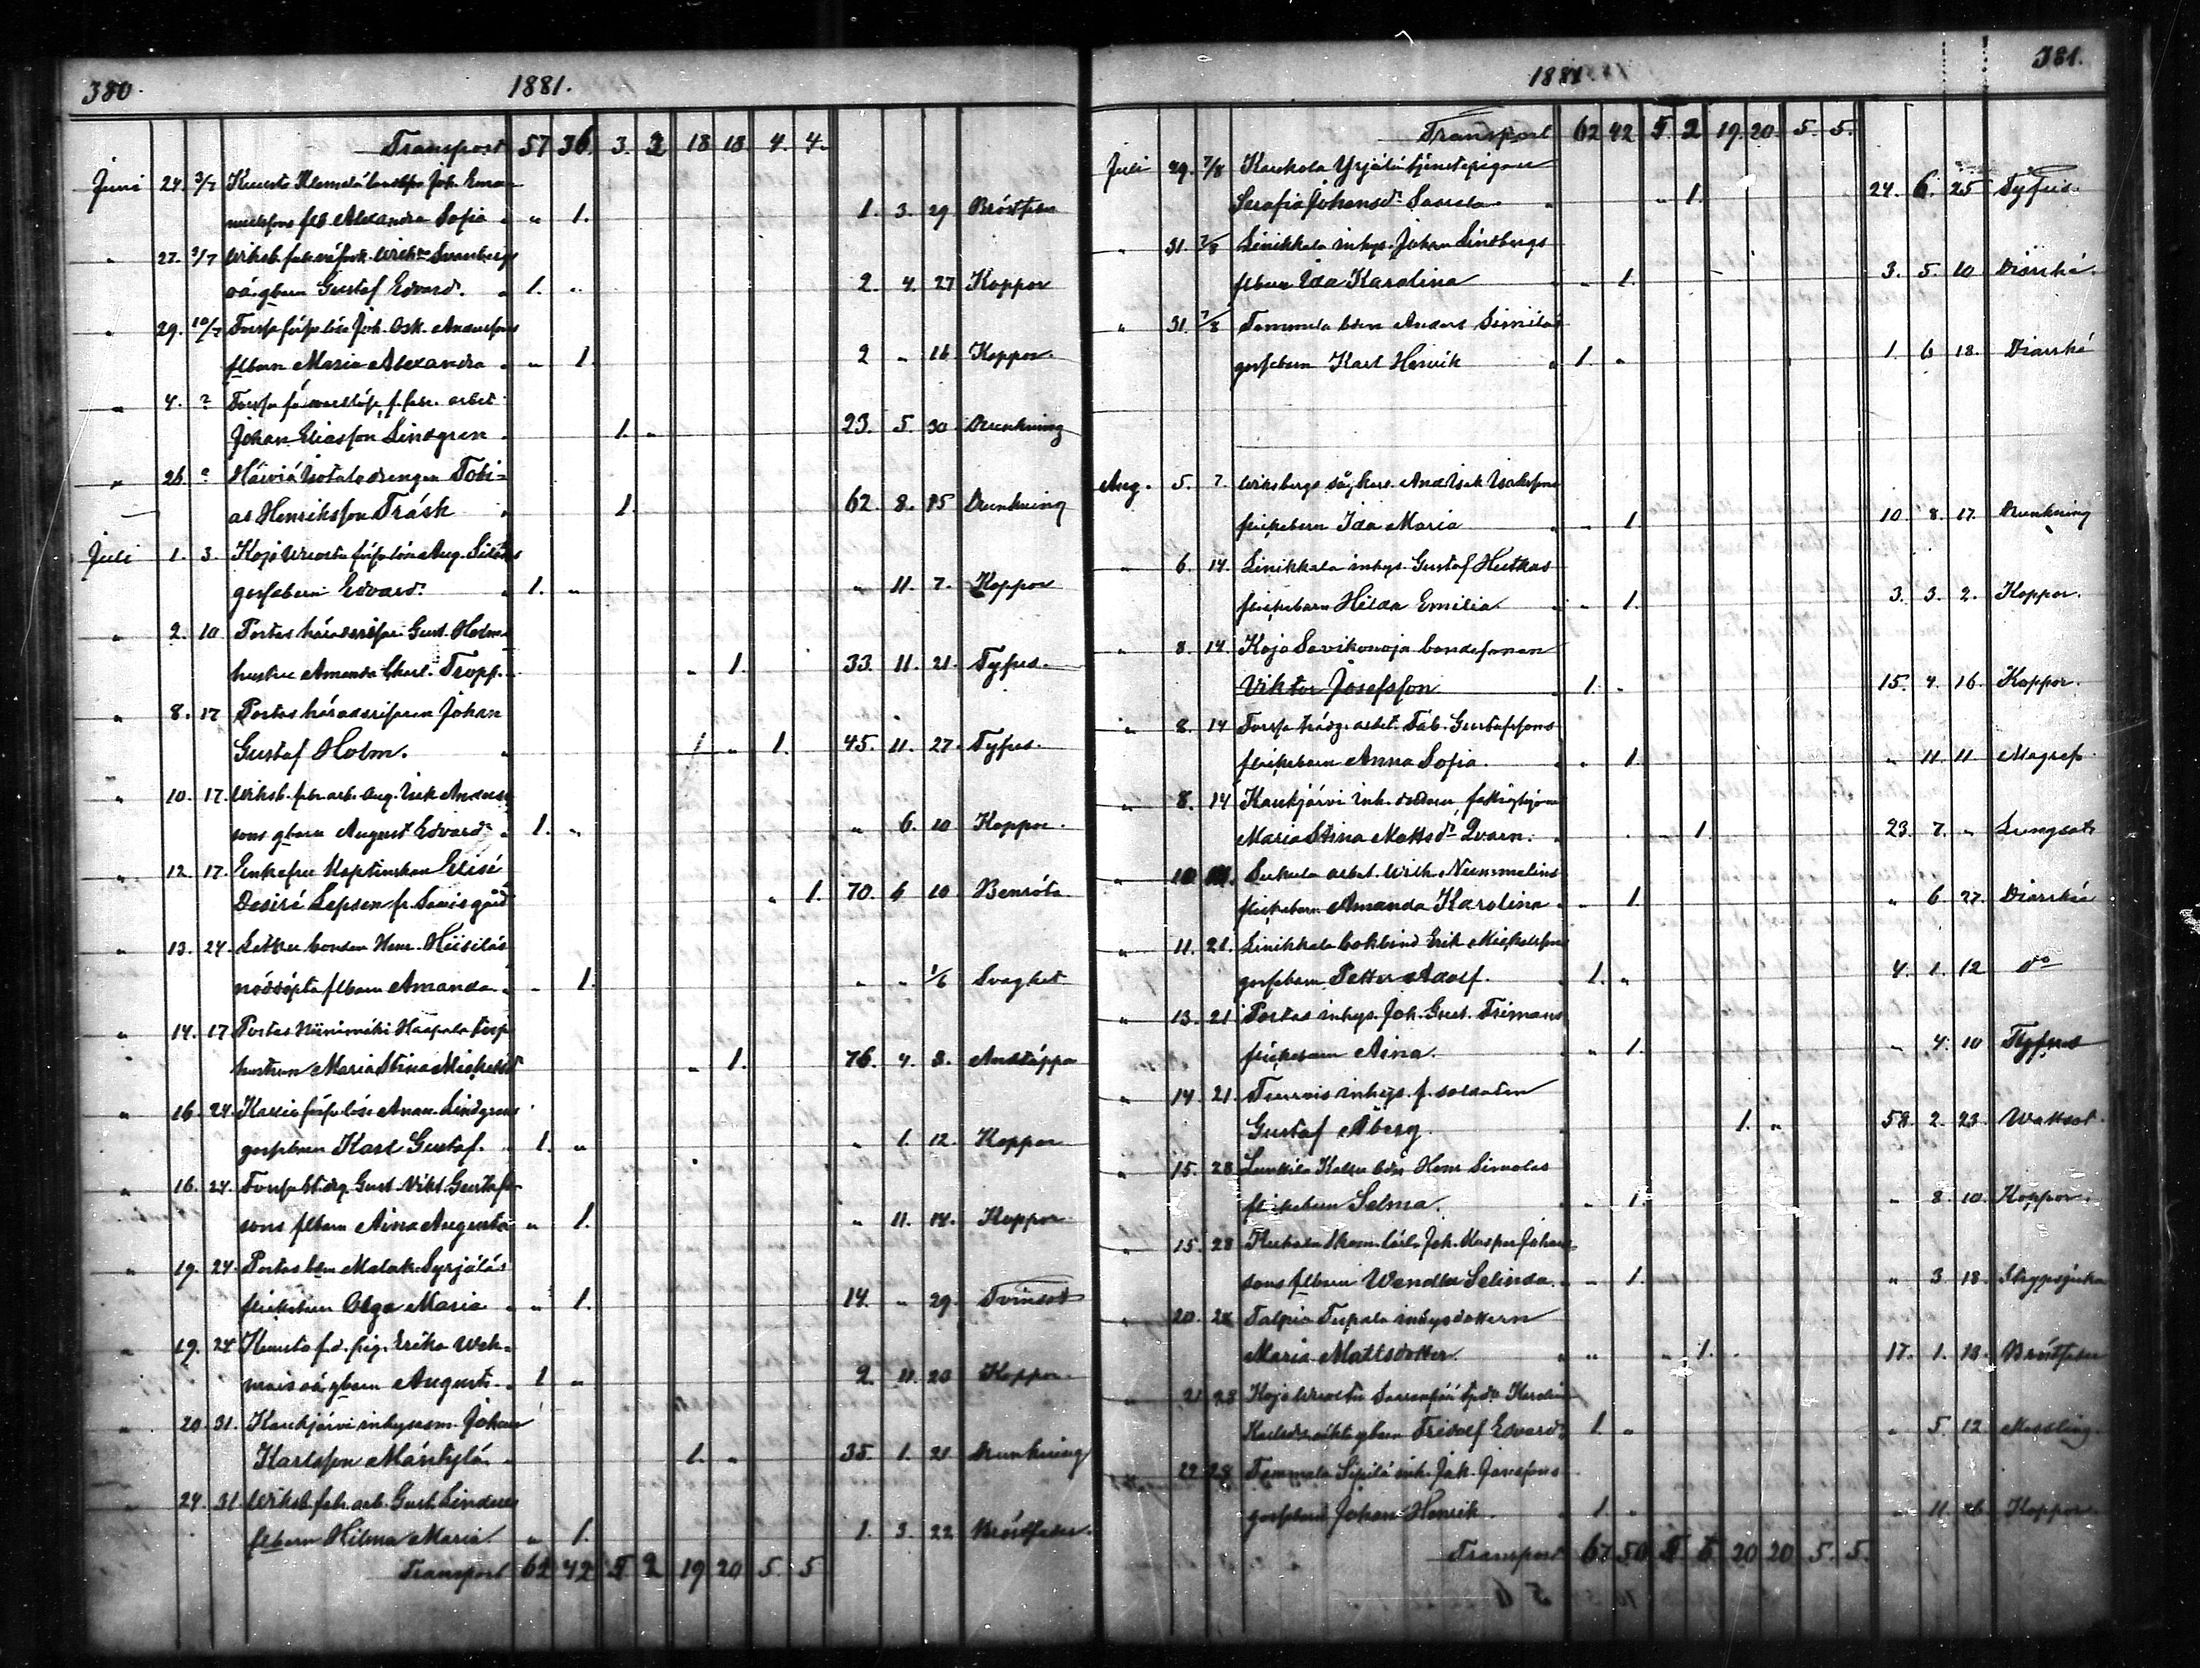 380.
1881.
Transport 57 36. 3. 2 18 18 4. 4.
Juni 24. 3/7 Kuusto Klemelä landbs. Joh. Ema-
nuelssons flb Alexandra Sofia „ „ 1. 1. 3. 29 Bröstfeber
„ 27. 3/7 Wiksb. Svanbergs
oä. gbarn Gustaf Edvard. „ 1. „ 2. 4. 27 Koppor
„ 29. 10/7 Forssa Joh. Osk. Anderssons
flbarn Maria Alexandra „ „ 1. 2 „ 16 Koppor.
„ 4. ? Forssa f. fabr. arbet.
Johan Eliasson Lindgren „ 1. „ 23. 5. 30 Drunkning
„ 26 ? drengen Tobi=
as Henriksson Träsk „ 1. 62. 8. 15 Drunkning
Juli 1. 3. Kojo Aug.
gossebarn Edvard. „ 1. „ „ 11. 7. Koppor
„ 2. 10 Portas häradsskrifvar Gust. Holms
hustru Amanda Charl. Tropp. „ 1. 33. 11. 21. Tyfus.
„ 8. 17 Portas häradsskrifvaren Johan
Gustaf Holm. „ 1 „ 1. 45. 11. 27. Tyfus.
„ 10. 17. Wiksb. fabr. arb. Aug. Isak Anders-
sons gbarn August Edvard „ 1. „ „ 6. 10 Koppor.
„ 12. 17. Enkefru Kaptenskan Elisé
Desiré Lepsén fr. gård „ 1. 70. 6 10 Benröta
„ 13. 24. Letku bonden Henr. Hiisiläs
nöddöpta flbarn Amanda „ „ 1. „ „ 1/6 Svaghet
„ 14. 17 Portas Niinimäki Haapala torp.
hustrun Maria Stina Mickelsd „ 1. 76. 4. 8. Andtäppa
„ 16. 24. Anan. Lindgrens
gossebarn Karl Gustaf. „ 1. „ „ 1. 12. Koppor
„ 16. 24. Forssa Gust. Vikt. Gustafs-
sons flbarn Aina Augusta „ 1. „ 11. 14. Koppor
„ 19. 24. Portas Malak. Syrjäläs
flickebarn Olga Maria „ „ 1. 14. „ 29. Tvinsot
„ 19. 24 Kuusto f.d. pig. Erika Weh-
mais oä. gbarn August. „ 1 „ 2. 11. 20 Koppor.
„ 20. 31. Kaukjärvi inhysesm. Johan
Karlsson Mäntylä. „ 1. „ 35. 1. 21 Drunkning
„ 24. 31. Wiksb. fab. arb. Gust. Linderos
flbarn Hilma Maria. „ 1. 1. 3. 22 Bröstfeber.
Transport 62 42 5 2 19 20 5. 5
381.
1881.
Transport 62 42 5. 2 19. 20. 5. 5.
Juli 29. 7/8 Kaukola Yrjälä tjenstepigan
Serafia Johansd. Saarela „ „ 1. 24. 6. 25 Tyfus.
„ 31. 7/8 Linikkala inhys. Johan Lindbergs
flbarn Ida Karolina „ „ 1. 3. 5. 10 Diarrhé.
„ 31. 7/8 Tammela Anders Similäs
gossebarn Karl Henrik „ 1. „ 1 6 18. Diarrhé
Aug. 5. 7. Wiksbergs And. Isak Isakssons
flickebarn Ida Maria „ „ 1. 10. 8. 17. Drunkning
„ 6. 14. Linikkala inhys. Gustaf Hutkas
flickebarn Hilda Emilia. „ „ 1. 3. 3. 2. Koppor.
„ 8. 14. Kojo Savikonoja bondesonen
Viktor Josefsson „ 1. „ 15. 4. 16. Koppor.
„ 8. 14 Forssa trädg. arbet. Tab. Gustafssons
flickebarn Anna Sofia. „ „ 1. „ 11 11 Magref.
„ 8. 14 Kaukjärvi inh. dottern
Maria Stina Mattsdr Qvarn. „ „ 1. 23. 7. „ Lungsot
„ 10 Sukula arbet. Wilh. Nummelins
flickebarn Amanda Karolina „ „ 1. „ 6. 27. Diarrhé
„ 11. 21. Linikkala bokbind. Erik Mickelssons
gossebarn Petter Adolf. „ 1. „ 4. 1. 12 do
„ 13. 21 Portas inhys. Joh. Gust. Frimans
flickebarn Aina. „ „ 1. „ 4. 10 Tyfus
„ 14. 21. inhys. f. soldaten
Gustaf Åberg. „ 1. „ 58. 2. 23. Wattsot.
„ 15. 28 Henr. Simolas
flickebarn Selma. „ „ 1. „ 8. 10. Koppor.
„ 15. 28 Joh. Kasper Johans-
sons flbarn Wendla Selinda. „ „ 1. „ 3. 18.
„ 20. 28 Talpia Tupala inhysdottern
Maria Mattsdotter. „ „ „ 1. 17. 1. 18. Bröstfeber
„ 21 28 Kojo
gbarn Fridolf Edvard. 1. „ „ 5. 12 Messling.
„ 22 28 Tammela Sipilä inh. Jak. Janssons
gossebarn Johan Henrik. „ 1. „ „ 11. 26 Koppor.
Transport 67 50 5 5 20 20 5. 5.